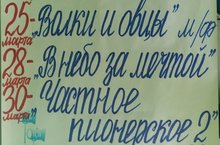 25- „Волки и овцы" м/ф
марта
28- „В небо за мечтой"
марта
30- Частное
марта пионерское 2"